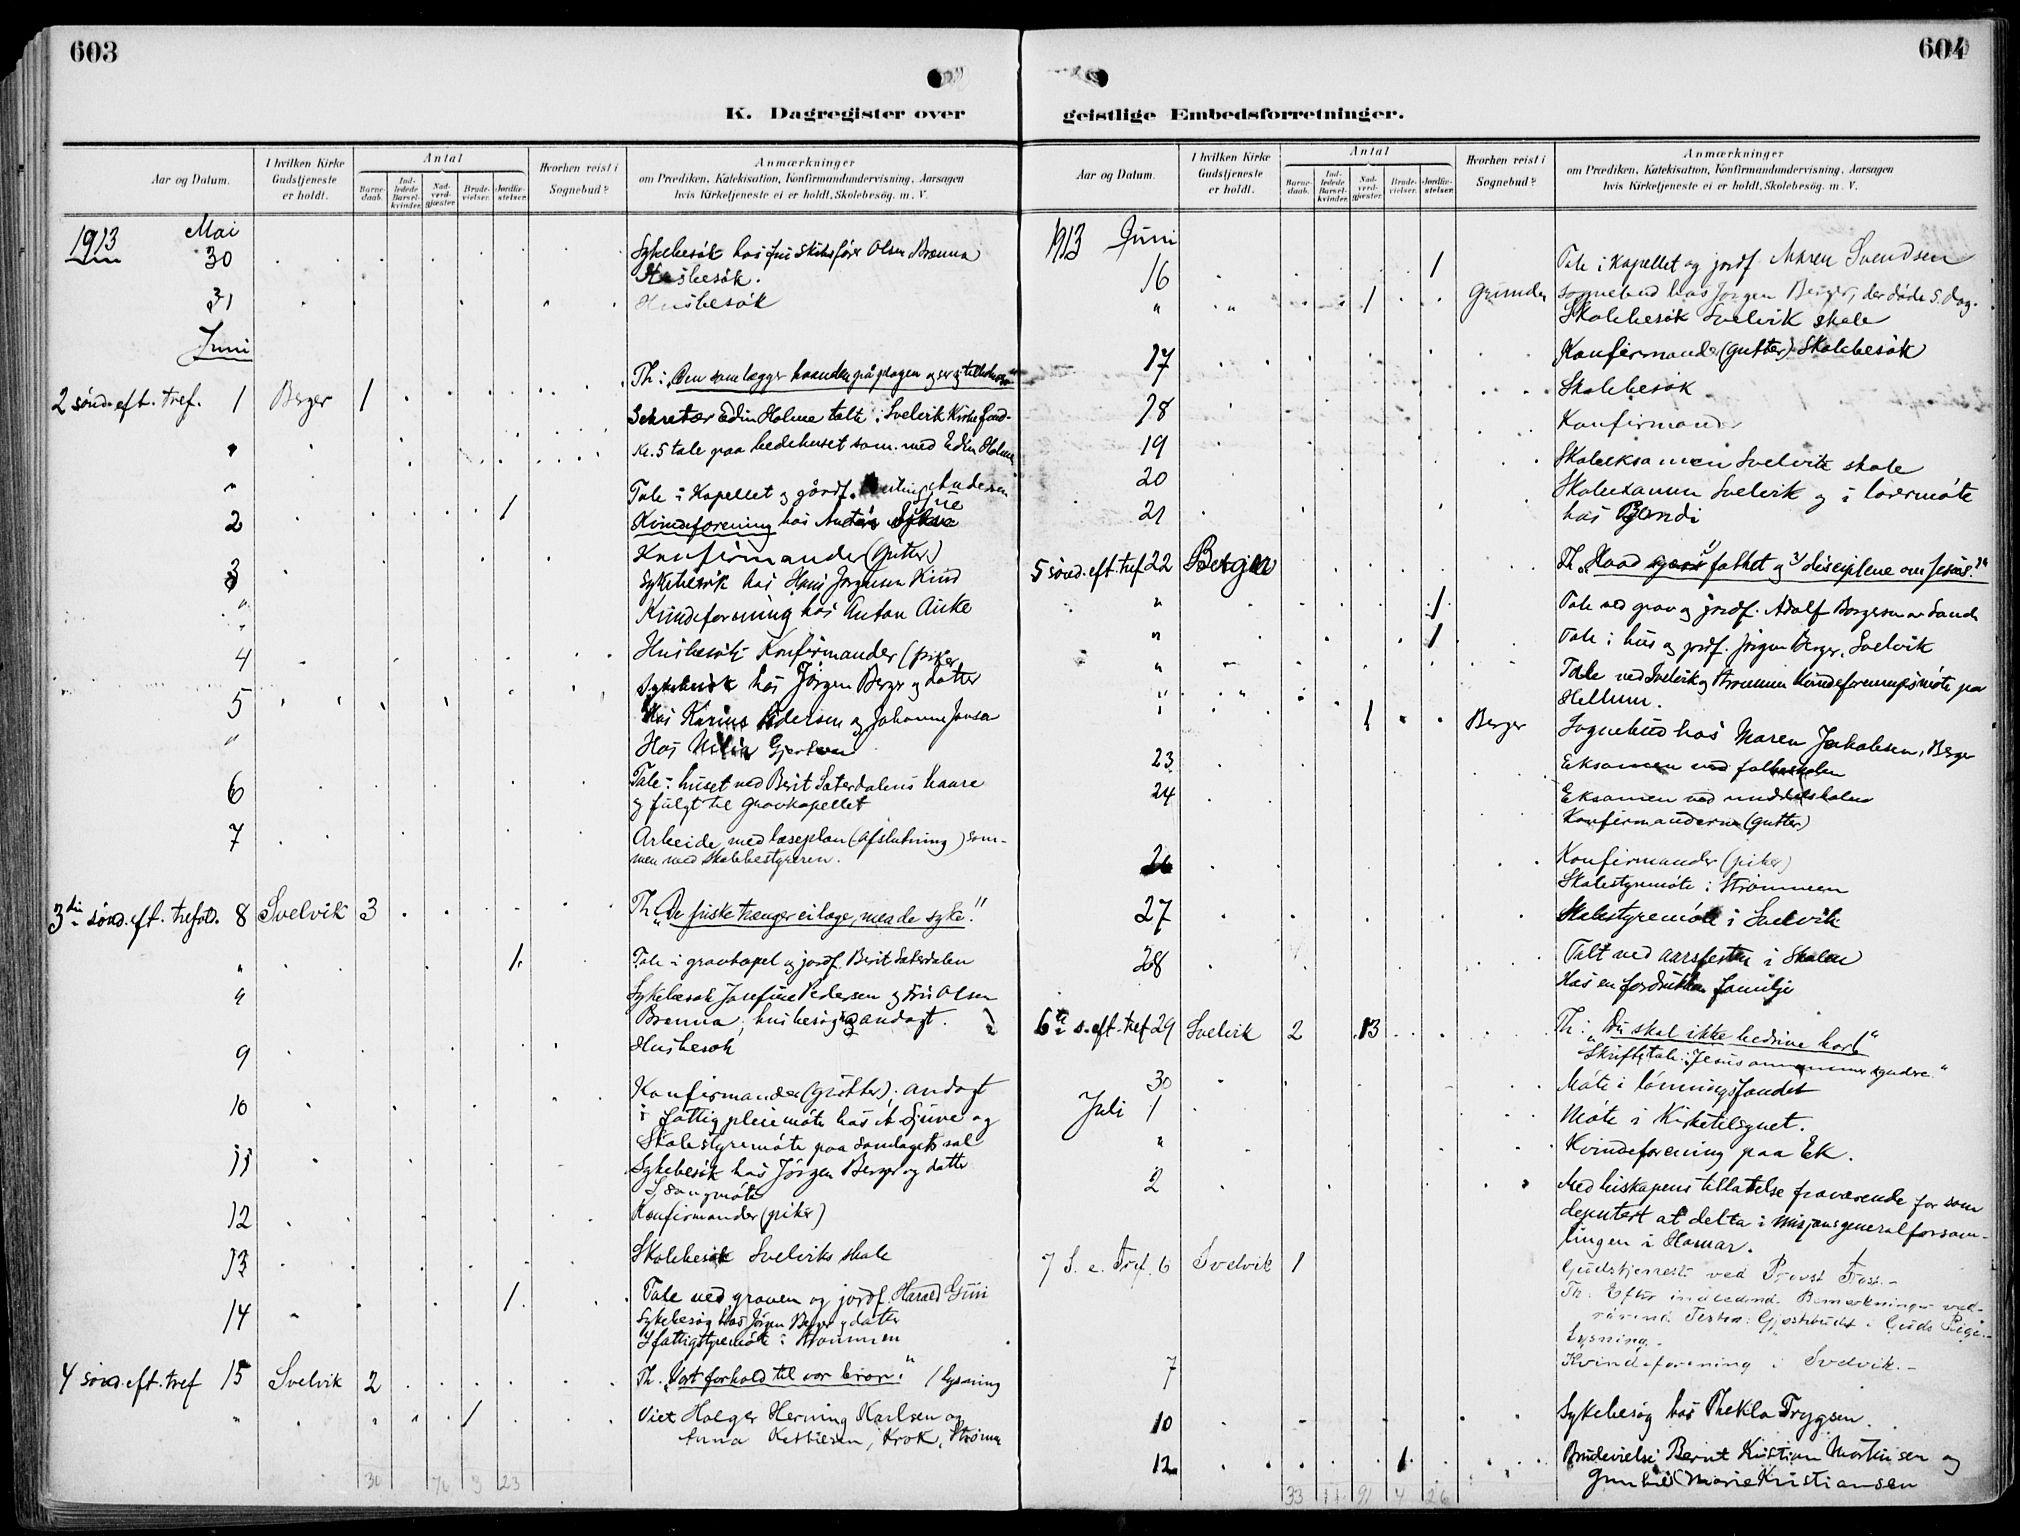 603
K. Dagregister over
Aar og Datum.
I hvilken Kirke Gudstjeneste er holdt.
Antal
Barne-daab.
Ind-ledede Barsel-kvinder.
Nad-verd-gjæster.
Brude-vielser.
Jordfæ-stelser.
Hvorhen reist i Sognebud?
Anmærkninger
om Prædiken, Katekisation, Konfirmandundervisning, Aarsagen
hvis Kirketjeneste ei er holdt, Skolebesøg. m. V.
1913 Mai
30 Sykebesøk hos fru Skibsfører Olsen Brenna
Husbesøk.
31 Husbesøk
Juni
2 sønd. eft. tref. 1 Berger 1 Th: "Den som lægger haanden på plogen og ser sig tilbake
Sekretær Edin Holme talte i Svelvik Kirke
Kl. 5 tale paa bedehuset sam. med Edin Holme
Tale i Kapellet og jordf. Andersen
2 1 Kvindeforening hos
3 Konfirmander (Gutter)
Sykebesøk hos Hans Jørgensen Kind
Kvindeforening hos Anton Aicke
4 Husbesøk Konfirmander (piker)
5 Sykebesøk hos Jørgen Berger og datter
Hos Karius Pedersen og Johanne Jensen
Hos
6 Tale i huset ved Berit Sæterdalens baare
og fulgt til Gravkapellet
7 Arbeide med læseplan (Afslutning) sam-
men med skolebestyreren.
3die sønd. eft. trefold. 8 Svelvik 3 Th. "De friske trænger ei læge, men de syke."
" 1. Tale i gravkapel og jordf. Berit Sæterdalen
" Sykebesøk Josefine Pedersen og Fru Olsen
Brenna; husbesøg og andagt.
9 Husbesøk
10 Konfirmander (gutter); andagt
i Fattigpleiemøte hos A Sjuve og
Skolestyremøte paa Samlagets sal
11 Sykebesøk hos Jørgen Berger og datter
12 Konfirmander (piker)
13 Skolebesøk Svelviks skole
14 1. Tale ved graven og jordf. Harald Gui
Sykebesøg hos Jørgen Berger og datter
I fattigstyremøte i Strømmen
4 sønd. eft. tref 15 Svelvik 2 Th. "Vort forhold til vor bror." / lysning
" 1 Viet Holger Herning Karlsen og
Anna , Krok, Strømm
30 76 3 23
604
geistlige Embedsforretninger.
Aar og Datum.
I hvilken Kirke Gudstjeneste er holdt.
Antal
Barne-daab.
Ind-ledede Barsel-kvinder.
Nad-verd-gjæster.
Brude-vielser.
Jordfæ-stelser.
Hvorhen reist i Sognebud?
Anmærkninger
om Prædiken, Katekisation, Konfirmandundervisning, Aarsagen
hvis Kirketjeneste ei er holdt, Skolebesøg. m. V.
1913 Juni
16 1 Tale i Kapellet og jordf Maren Svendsen
" 1 Grunden Sognebud hos Jørgen Berger, der døde s. dag.
Skolebesøk Svelvik skole
17 Konfirmander (gutter) Skolebesøk
18 Skolebesøk
19 Konfirmander
20 Skoleeksamen Svelvik skole
21 Skoleexamen Svelvik og i lærermøte
hos
5 sønd. eft. tref 22 Berger Th. "Hvad folket og disciplene om Jesus."
" 1 Tale ved grav og jordf. Adolf Borgersen av Sande
" 1 Tale i hus og jordf. Jørgen Berger, Svelvik
" Tale ved Svelvik og Strømmen Kvindeforeningsmøte paa
Hellum.
" 1 Berger Sognebud hos Maren Jakobsen, Berger
23 Eksamen ved folkeskolen
24 Eksamen ved middelskolen
Konfirmanderne (gutter)
26 Konfirmander (piker)
Skolestyremøte i Strømmen
27 Skolestyremøte i Svelvik
28 Talt ved aarsfesten i Skolen
Hos en fordrukken familje
6te s. eft. tref 29 Svelvik 2 13 Th: "Du skal ikke bedrive hor!"
Skriftetale: Jesus annammer syndere."
30 Møte i lønningsfondet
Juli 1 Møte i Kirketilsynet.
" Kvindeforening paa Ek.
2 Med biskopens tillatelse fraværende for som
deputert at delta i misjonsgeneralforsam-
lingen i Hamar.
7 S. e. Tref. 6 Svelvik 1 Gudstjeneste ved Provst
Th: Efter indledende Bemerkninger ved-
rørende Texten: Gjæstebudet i Guds Rige.-
Lysning.-
7 Kvindeforening i Svelvik.-
10 Sykebesøg hos Thekla Trygsen.
12 1 Brudevielse Bernt Kristian Mortinsen og
Gunhild Marie Kristiansen
33 11 91 4 26